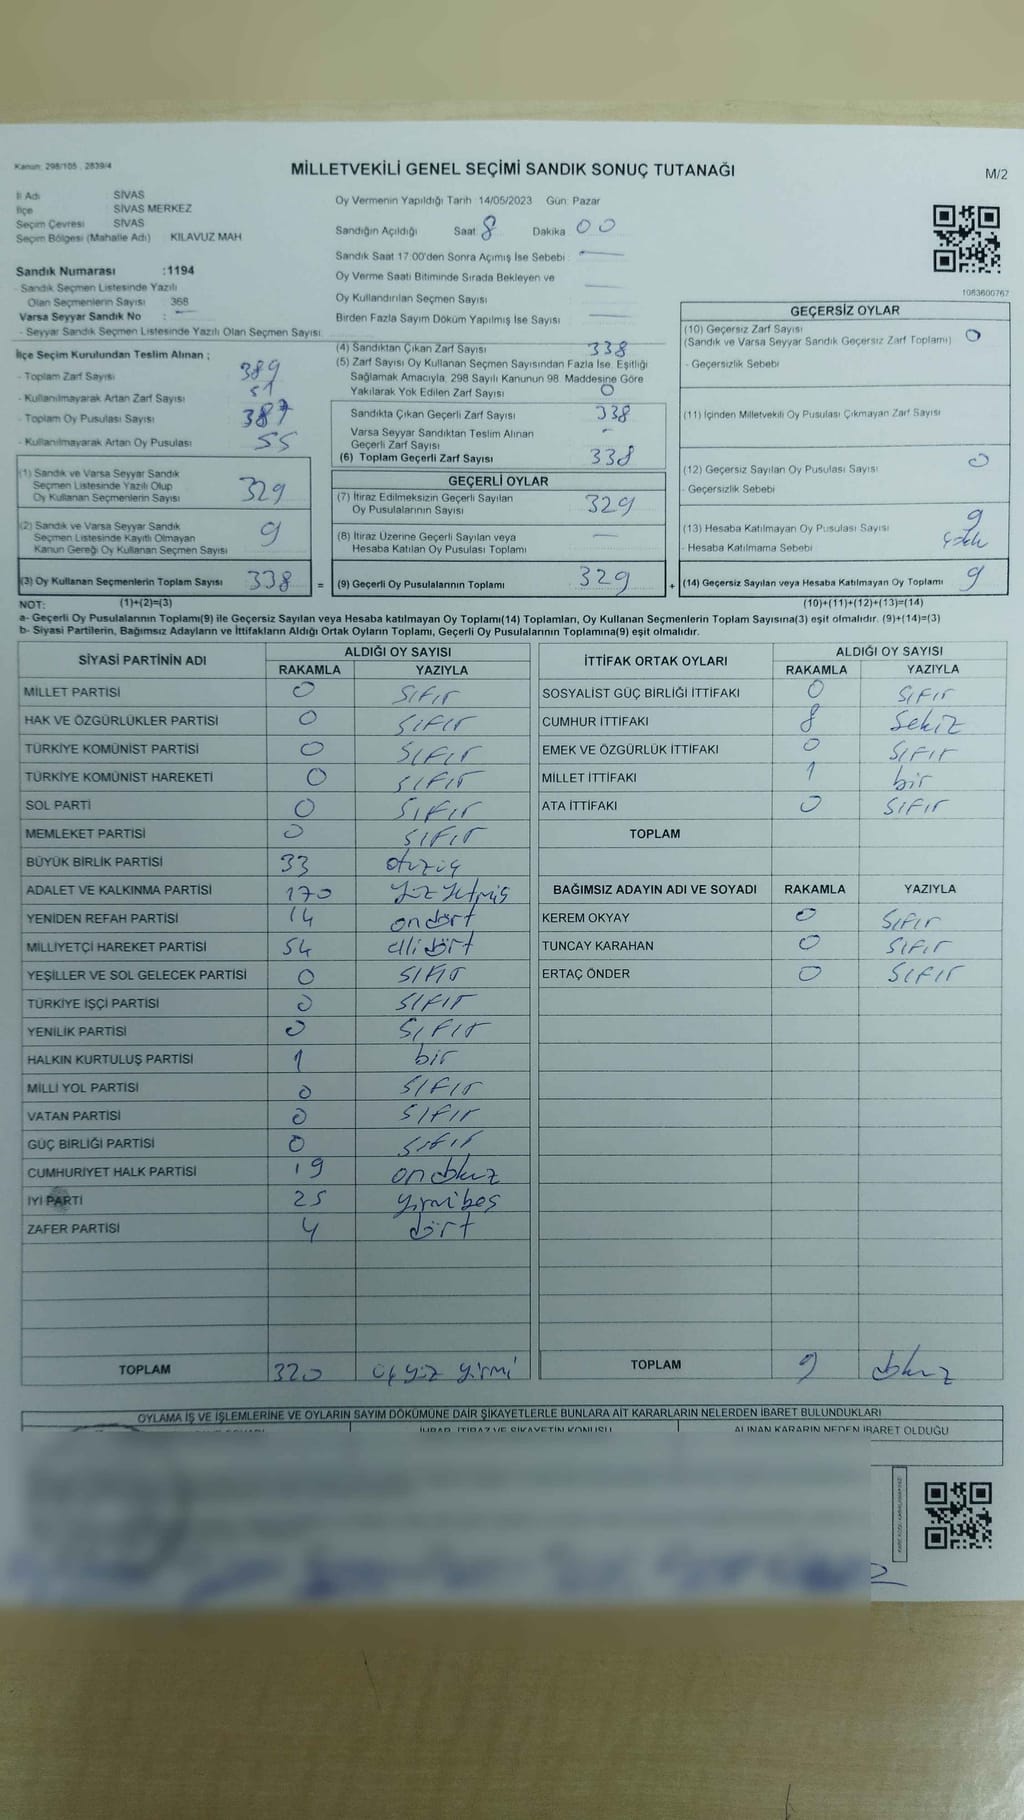 Kanun: 298/105 , 2839/4
MİLLETVEKİLİ GENEL SEÇİMİ SANDIK SONUÇ TUTANAĞI
M/2
İl Adı SİVAS
İlçe SİVAS MERKEZ
Seçim Çevresi SİVAS
Seçim Bölgesi (Mahalle Adı) KILAVUZ MAH
Sandık Numarası :1194
- Sandık Seçmen Listesinde Yazılı
Olan Seçmenlerin Sayısı 368
Varsa Seyyar Sandık No : —
- Seyyar Sandık Seçmen Listesinde Yazılı Olan Seçmen Sayısı:
Oy Vermenin Yapıldığı Tarih 14/05/2023 Gün: Pazar
Sandığın Açıldığı Saat 8 Dakika 00
Sandık Saat 17.00'den Sonra Açımış İse Sebebi —
Oy Verme Saati Bitiminde Sırada Bekleyen ve
Oy Kullandırılan Seçmen Sayısı —
Birden Fazla Sayım Döküm Yapılmış İse Sayısı —
1083600767
İlçe Seçim Kurulundan Teslim Alınan ;
- Toplam Zarf Sayısı 389
- Kullanılmayarak Artan Zarf Sayısı 51
- Toplam Oy Pusulası Sayısı 387
- Kullanılmayarak Artan Oy Pusulası 55
(1) Sandık ve Varsa Seyyar Sandık
Seçmen Listesinde Yazılı Olup
Oy Kullanan Seçmenlerin Sayısı 329
(2) Sandık ve Varsa Seyyar Sandık
Seçmen Listesinde Kayıtlı Olmayan
Kanun Gereği Oy Kullanan Seçmen Sayısı 9
(3) Oy Kullanan Seçmenlerin Toplam Sayısı 338 =
(4) Sandıktan Çıkan Zarf Sayısı 338
(5) Zarf Sayısı Oy Kullanan Seçmen Sayısından Fazla İse, Eşitliği
Sağlamak Amacıyla, 298 Sayılı Kanunun 98. Maddesine Göre
Yakılarak Yok Edilen Zarf Sayısı 0
Sandıkta Çıkan Geçerli Zarf Sayısı 338
Varsa Seyyar Sandıktan Teslim Alınan
Geçerli Zarf Sayısı -
(6) Toplam Geçerli Zarf Sayısı 338
GEÇERLİ OYLAR
(7) İtiraz Edilmeksizin Geçerli Sayılan
Oy Pusulalarının Sayısı 329
(8) İtiraz Üzerine Geçerli Sayılan veya
Hesaba Katılan Oy Pusulası Toplamı —
(9) Geçerli Oy Pusulalarının Toplamı 329 +
GEÇERSİZ OYLAR
(10) Geçersiz Zarf Sayısı 0
(Sandık ve Varsa Seyyar Sandık Geçersiz Zarf Toplamı)
- Geçersizlik Sebebi
(11) İçinden Milletvekili Oy Pusulası Çıkmayan Zarf Sayısı
(12) Geçersiz Sayılan Oy Pusulası Sayısı 0
- Geçersizlik Sebebi
(13) Hesaba Katılmayan Oy Pusulası Sayısı 9
- Hesaba Katılmama Sebebi
(14) Geçersiz Sayılan veya Hesaba Katılmayan Oy Toplamı 9
NOT: (1)+(2)=(3) (10)+(11)+(12)+(13)=(14)
a- Geçerli Oy Pusulalarının Toplamı(9) ile Geçersiz Sayılan veya Hesaba katılmayan Oy Toplamı(14) Toplamları, Oy Kullanan Seçmenlerin Toplam Sayısına(3) eşit olmalıdır. (9)+(14)=(3)
b- Siyasi Partilerin, Bağımsız Adayların ve İttifakların Aldığı Ortak Oyların Toplamı, Geçerli Oy Pusulalarının Toplamına(9) eşit olmalıdır.
SİYASİ PARTİNİN ADI ALDIĞI OY SAYISI
RAKAMLA YAZIYLA
MİLLET PARTİSİ 0 sıfır
HAK VE ÖZGÜRLÜKLER PARTİSİ 0 sıfır
TÜRKİYE KOMÜNİST PARTİSİ 0 sıfır
TÜRKİYE KOMÜNİST HAREKETİ 0 sıfır
SOL PARTİ 0 sıfır
MEMLEKET PARTİSİ 0 sıfır
BÜYÜK BİRLİK PARTİSİ 33 otuzüç
ADALET VE KALKINMA PARTİSİ 170 yüz yetmiş
YENİDEN REFAH PARTİSİ 14 ondört
MİLLİYETÇİ HAREKET PARTİSİ 54 ellidört
YEŞİLLER VE SOL GELECEK PARTİSİ 0 sıfır
TÜRKİYE İŞÇİ PARTİSİ 0 sıfır
YENİLİK PARTİSİ 0 sıfır
HALKIN KURTULUŞ PARTİSİ 1 bir
MİLLİ YOL PARTİSİ 0 sıfır
VATAN PARTİSİ 0 sıfır
GÜÇ BİRLİĞİ PARTİSİ 0 sıfır
CUMHURİYET HALK PARTİSİ 19 ondokuz
İYİ PARTİ 25 yirmibeş
ZAFER PARTİSİ 4 dört
TOPLAM 320 üç yüz yirmi
İTTİFAK ORTAK OYLARI ALDIĞI OY SAYISI
RAKAMLA YAZIYLA
SOSYALİST GÜÇ BİRLİĞİ İTTİFAKI 0 sıfır
CUMHUR İTTİFAKI 8 sekiz
EMEK VE ÖZGÜRLÜK İTTİFAKI 0 sıfır
MİLLET İTTİFAKI 1 bir
ATA İTTİFAKI 0 sıfır
TOPLAM
BAĞIMSIZ ADAYIN ADI VE SOYADI RAKAMLA YAZIYLA
KEREM OKYAY 0 sıfır
TUNCAY KARAHAN 0 sıfır
ERTAÇ ÖNDER 0 sıfır
TOPLAM 9 dokuz
OYLAMA İŞ VE İŞLEMLERİNE VE OYLARIN SAYIM DÖKÜMÜNE DAİR ŞİKAYETLERLE BUNLARA AİT KARARLARIN NELERDEN İBARET BULUNDUKLARI
İHBAR, İTİRAZ VE ŞİKAYETİN KONUSU ALINAN KARARIN NEDEN İBARET OLDUĞU